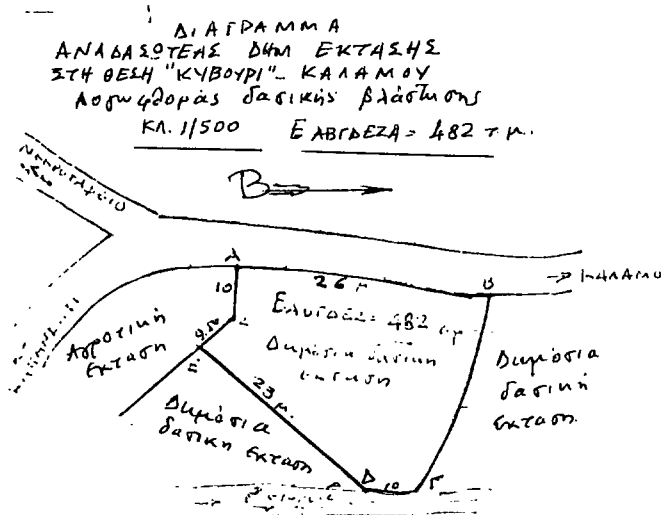 ΔΙΑΓΡΑΜΜΑ
ΑΝΑΔΑΣΩΤΕΑΣ ΔΗΜ ΕΚΤΑΣΗΣ
ΣΤΗ ΘΕΣΗ "ΚΥΒΟΥΡΙ" - ΚΑΛΑΜΟΥ
Λόγω φθοράς δασικής βλάστησης
ΚΛ. 1/500 Ε ΑΒΓΔΕΖΑ = 482 τ.μ.
Β
Α
26 μ
Β
→ ΚΑΛΑΜΟ
10
Ζ
ΕΑΒΓΔΕΖ = 482 τμ
Δημόσια δασική
έκταση
Αγροτική
έκταση
9.50
Ε
23 μ.
Δημόσια
δασική
έκταση.
Δημόσια
δασική έκταση
Δ 10 Γ